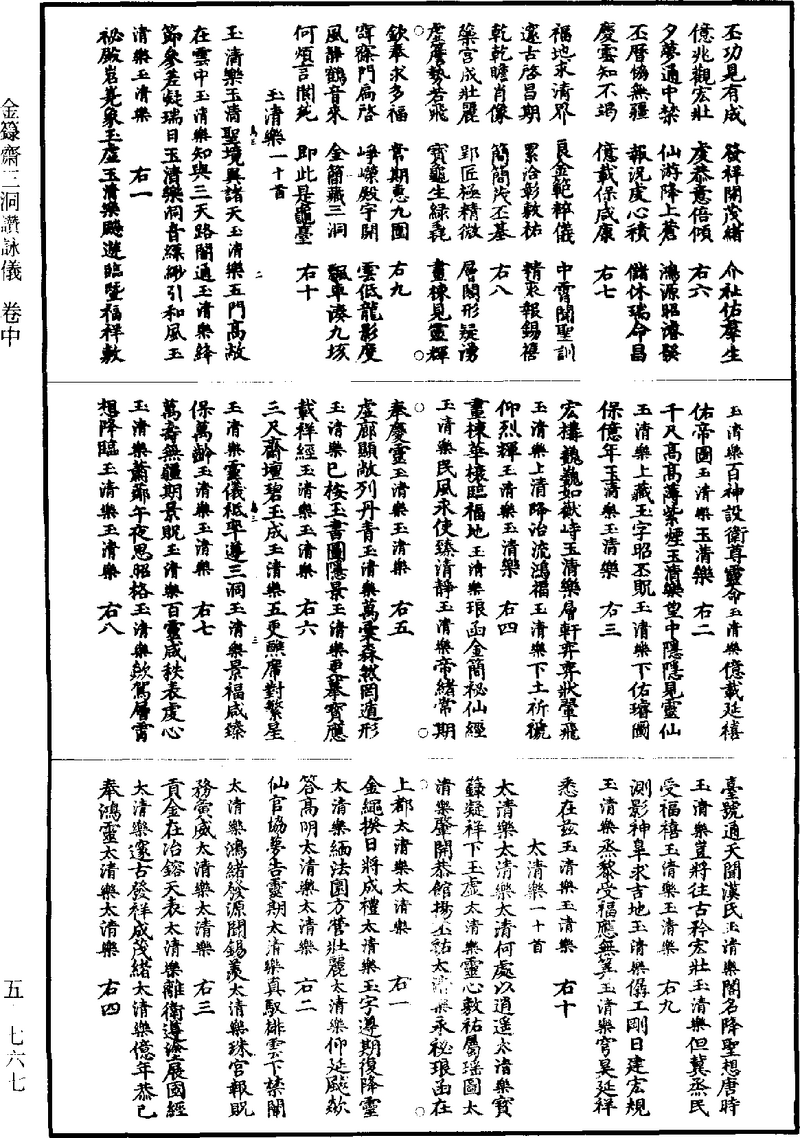 丕功見有成　發祥開茂緒　介祉佑羣生
億兆觀宏壯　虔恭意倍傾　右六
夕夢通中禁　仙游降上蒼　鴻源昭濬發
丕曆協無疆　報況虔心積　儲休瑞命昌
慶雲知不竭　億載保咸康　右七
福地求清界　良金範粹儀　中霄聞聖訓
邃古啓昌期　累洽彰敷祐　精衷報錫禧
乾乾瞻肖像　簡簡茂丕基　右八
藥宮成壯麗　郢匠極精微　層閣形疑湧
虛簷勢若飛　寶龜生綠毳　畫棟見靈輝
欽奉求多福　常期惠九圍　右九
寂門扃啓　崢嶸殿宇開　雲低龍影度
風靜鶴音來　金簡藏三洞　飇車湊九垓
何煩言閬苑　即此是龜臺　右十
玉清樂一十首
玉清樂玉清聖境異諸天玉清樂五門高敞
在雲中玉清樂知與三天路闇通玉清樂絳
節參差凝瑞日玉清樂洞音縹緲引和風玉
清樂玉清樂　右一
祕殿岧嶤象玉虛玉清樂飇遊臨暨福祥敷
玉清樂百神設衛尊靈命玉清樂億載延禧
佑帝圖玉清樂玉清樂　右二
千尺高高薄紫煙玉清樂望中隱隱見靈仙
玉清樂上藏玉字昭丕貺玉清樂下佑璿圖
保億年玉清樂玉清樂　右三
宏構巍巍如嶽峙玉清樂層軒弈弈狀翬飛
玉清樂上清降治流鴻福玉清樂下土祈禠
仰烈輝玉清樂玉清樂　右四
畫棟華榱臨福地玉清樂琅函金簡祕仙經
玉清樂民風永使臻清靜玉清樂帝緒常期
奉慶靈玉清樂玉清樂　右五
虛廊顯敞列丹青玉清樂萬彙森然罔遁形
玉清樂已按玉書圖隱景玉清樂更摹寶應
載祥經玉清樂玉清樂　右六
三尺齋壇碧玉成玉清樂五更醮席對繁星
玉清樂靈儀秪率遵三洞玉清樂景福咸臻
保萬齡玉清樂玉清樂　右七
萬壽無疆期景貺玉清樂百靈咸秩表虔心
玉清樂蕭薌午夜思昭格玉清樂歘駕層霄
想降臨玉清樂玉清樂　右八
臺號通天聞漢氏玉清樂閣名降聖想唐時
玉清樂豈將往古矜宏壯玉清樂但冀烝民
受福禧玉清樂玉清樂　右九
測影神皐求吉地玉清樂僝工剛日建宏規
玉清樂丞黎受福應無筭玉清樂穹昊延祥
悉在茲玉清樂玉清樂　右十
太清樂一十首
太清樂太清樂太清何處以逍遥太清樂寶
籙凝祥下玉虛太清樂靈心敷祐屬瑶圖太
清樂肇開恭館揚丕祜太清樂永祕琅函在
上都太清樂太清樂　右一
金繩揆日將成禮太清樂玉字遵期復降靈
太清樂緬法圓方營壯麗太清樂仰延飇歘
答高明太清樂太清樂　右二
仙官協夢告靈期太清樂真馭排雲下禁闈
太清樂鴻緒發源開錫羨太清樂珠宮報貺
務寅威太清樂太清樂　右三
貢金在冶鎔天表太清樂離衛遵塗展國經
太清樂邃古發祥咸茂緒太清樂億年恭己
奉鴻靈太清樂太清樂　右四
金籙齋三洞讚詠儀　卷中
五　七六七